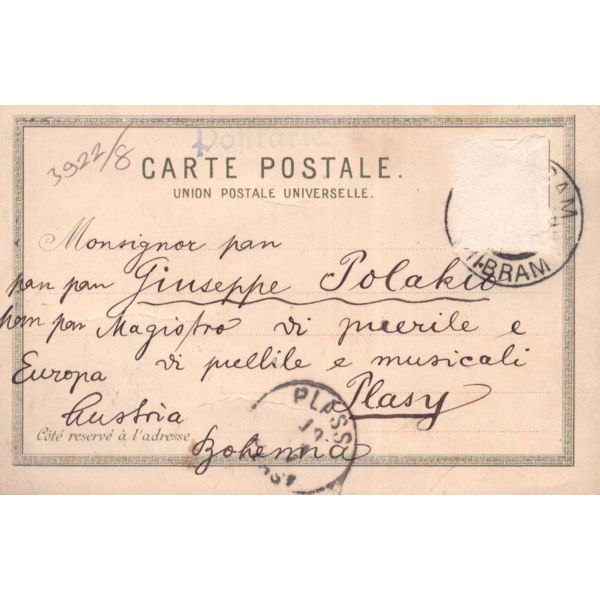 3922/8
Postkarte
CARTE POSTALE.
UNION POSTALE UNIVERSELLE.
BRAM
Monsignor pan
pan pan Giuseppe Polaku
pan pan Magistro di puerile e
Europa di puellile e musicali
Austria Plasy
Côté reservé à l'adresse
Bohemia
PLASS